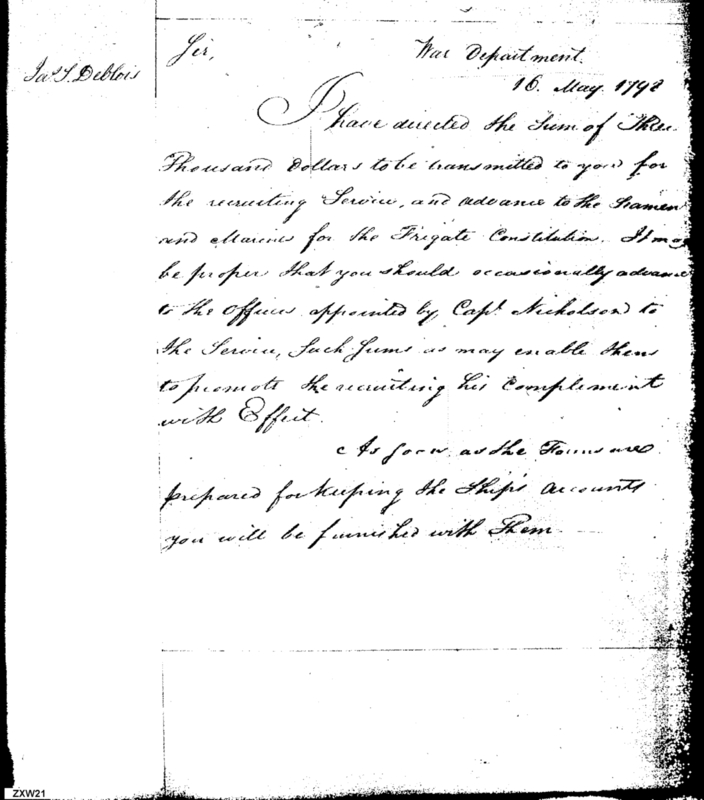 Jas. S. Deblois
Sir,
War Department.
16. May. 1798
I have directed the Sum of Three
Thousand Dollars to be transmitted to you for
the recruiting Service, and advance to the Seamen
and Marines for the Frigate Constitution. It may
be proper that you should occasionally advance
to the Officers appointed by Capt. Nicholson to
the Service, Such Sums as may enable them
to promote the recruiting his Complement
with Effect.
As soon as the Forms are
prepared for keeping the Ship's accounts
you will be furnished with Them
ZXW21